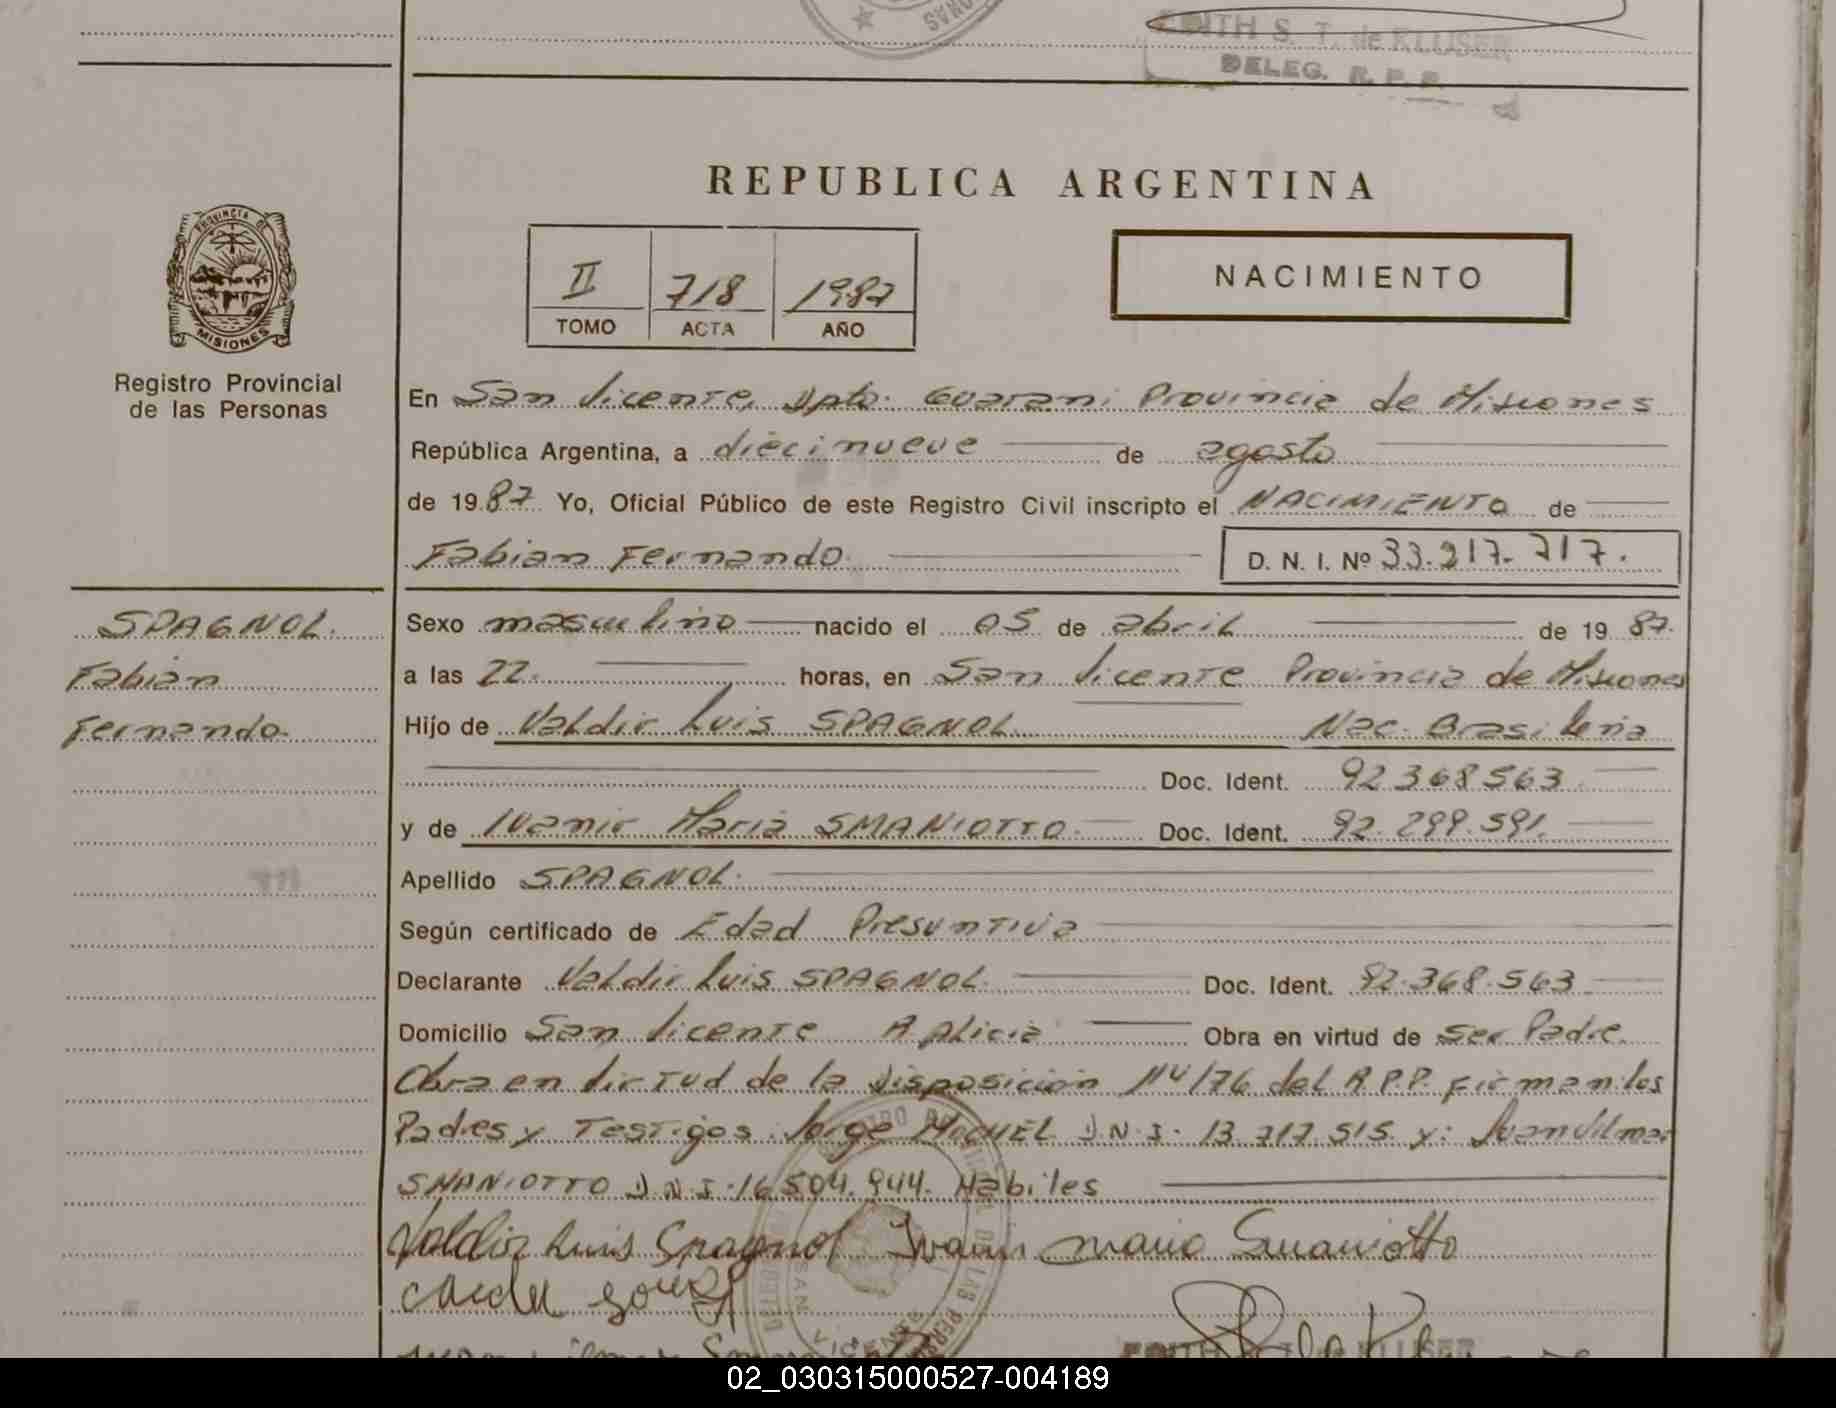 EDITH S. T. de KLUSER
DELEG. R. P. P.
REPUBLICA ARGENTINA
PROVINCIA DE
MISIONES
Registro Provincial
de las Personas
II 718 1987
TOMO ACTA AÑO
NACIMIENTO
En San Vicente, Dpto. Guarani Provincia de Misiones
República Argentina, a diecinueve de agosto
de 19 87 Yo, Oficial Público de este Registro Civil inscripto el NACIMIENTO de
Fabian Fernando. D. N. I. Nº 33.217.717.
SPAGNOL.
Fabian
Fernando.
Sexo masculino nacido el 05 de abril de 19 87.
a las 22. horas, en San Vicente Provincia de Misiones
Hijo de Valdir Luis SPAGNOL Nac. Brasileña
Doc. Ident. 92 368 563
y de Ivanir Maria SMANIOTTO. Doc. Ident. 92.299.591.
Apellido SPAGNOL.
Según certificado de Edad Presuntiva
Declarante Valdir Luis SPAGNOL. Doc. Ident. 92.368.563
Domicilio San Vicente A. Alicia Obra en virtud de ser Padre.
Obra en virtud de la Disposición 114/76 del R.P.P. Firman los
Padres y Testigos Jorge D.N.I. 13 717 515 y: Juan Vilmar
SMANIOTTO D.N.I. 16 504.944. Habiles
Valdir Luis Spagnol Ivanir Maria Smaniotto
EDITH S. T. de KLUSER
02_030315000527-004189